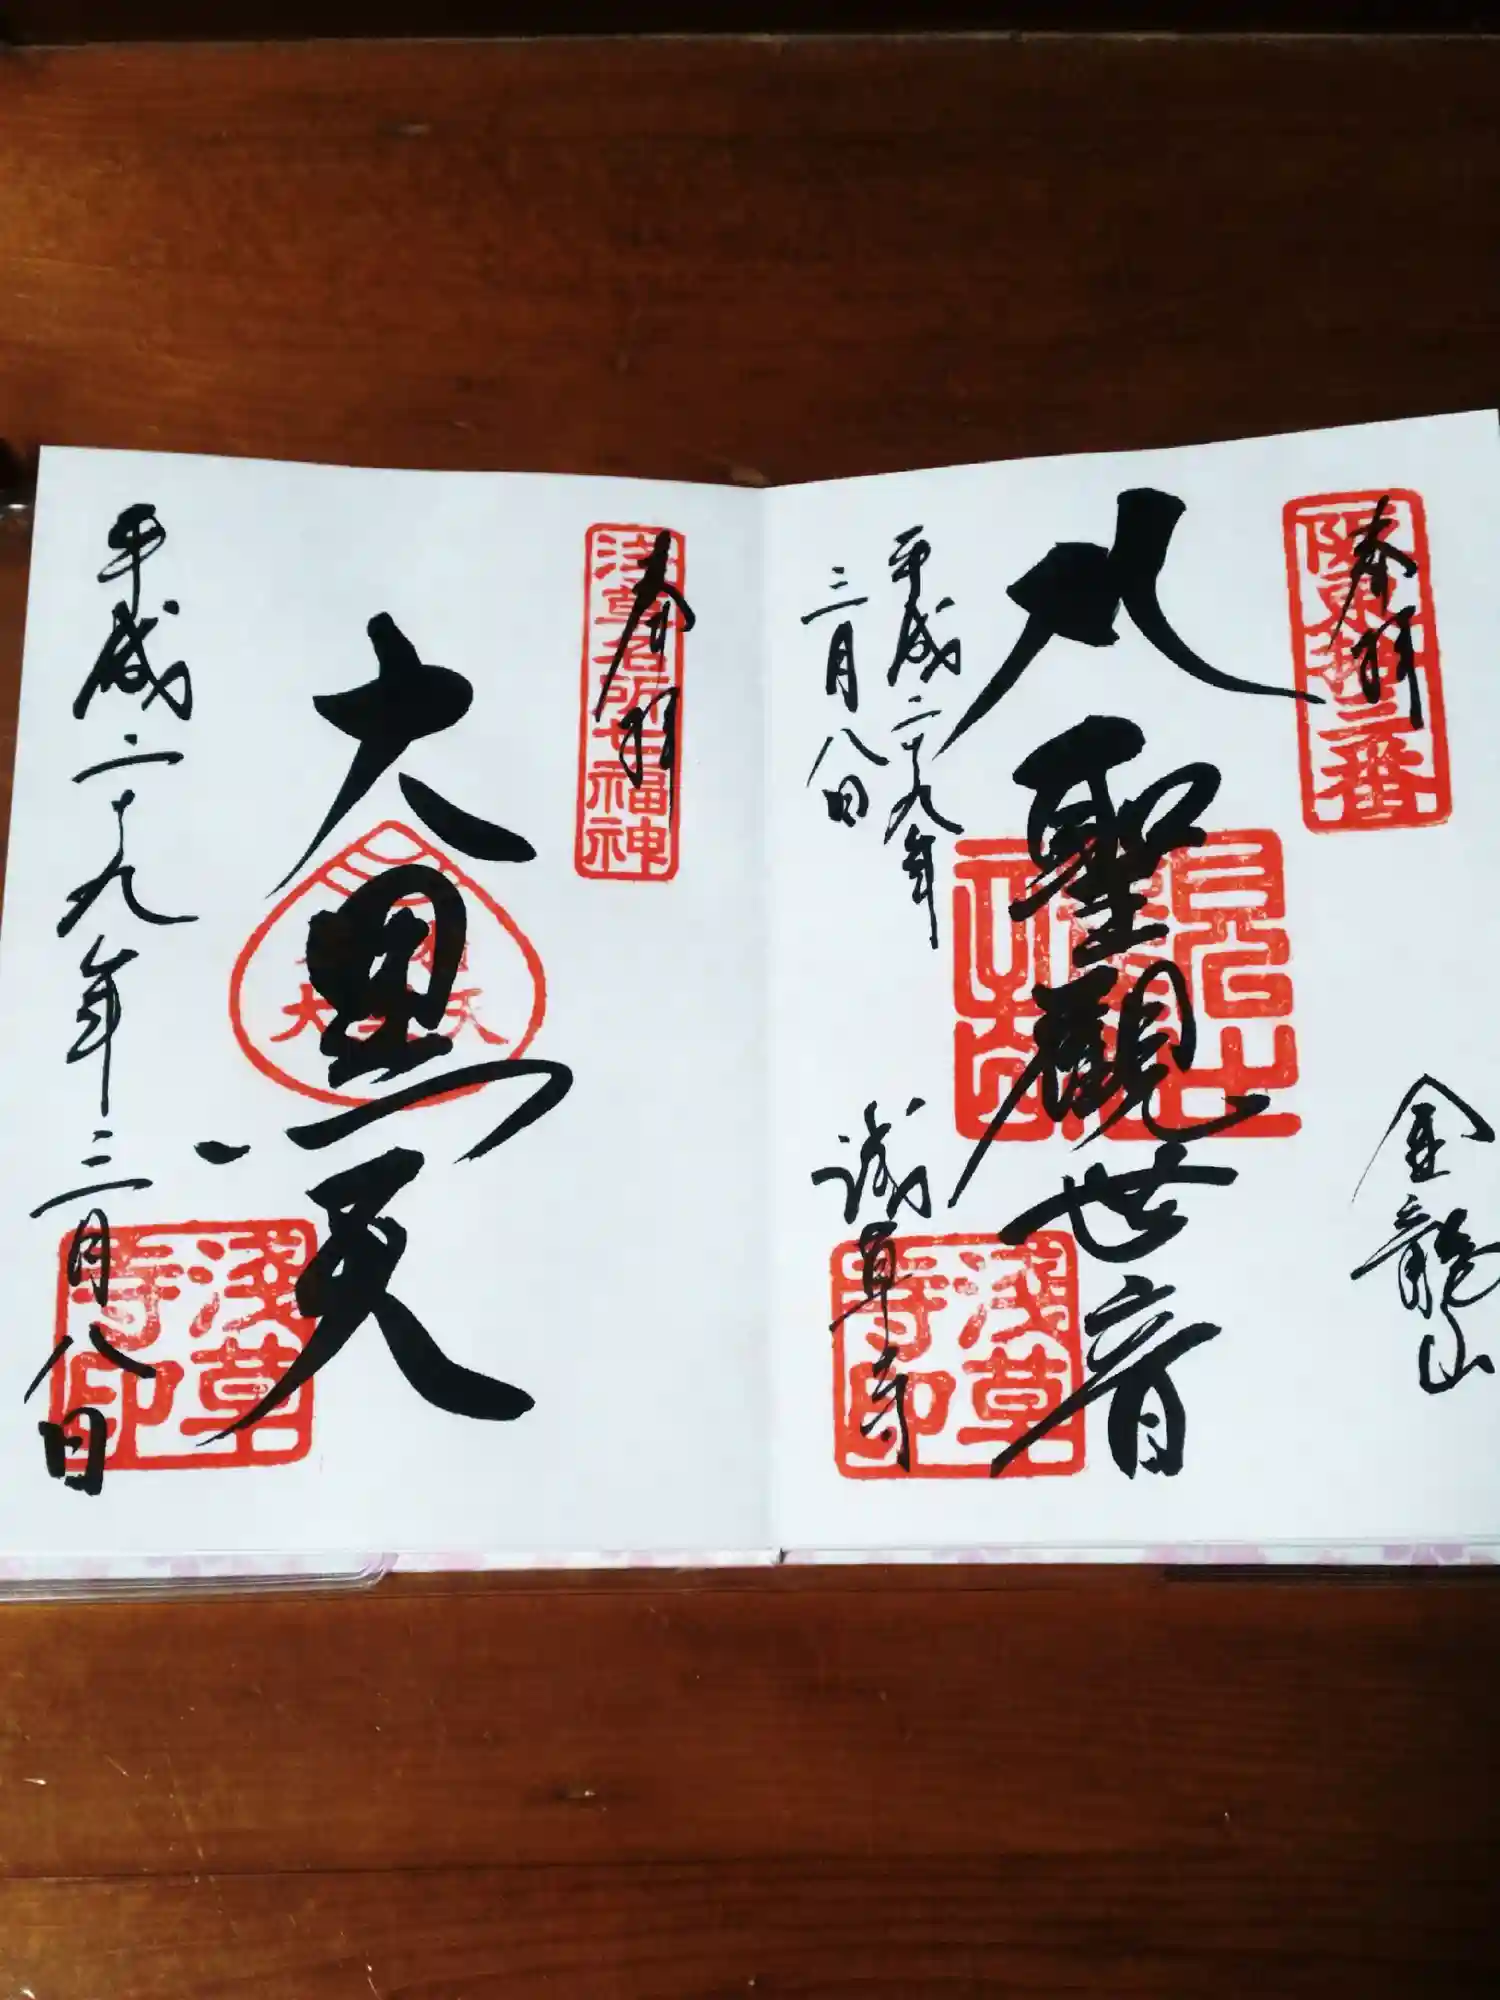 奉拝
坂東拾三番
金龍山
聖觀世音
平成二十九年
三月八日
浅草寺
浅草寺印
奉拝
浅草名所七福神
大黒天
平成二十九年三月八日
浅草寺印